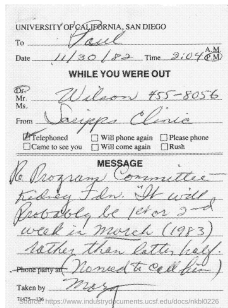 UNIVERSITY OF CALIFORNIA, SAN DIEGO
To Paul
Date 11/30/82 Time 2:04 A.M. P.M.
WHILE YOU WERE OUT
Dr.
Mr. Wilson 455-8056
Ms.
From Scripps Clinic
Telephoned Will phone again Please phone
Came to see you Will come again Rush
MESSAGE
Re Program Committee
Kidney Fdn. "It will
probably be 1st or 2nd
week in March (1983)
rather than latter half.
Phone party at (No need to call him)
Taken by Mary
Source: https://www.industrydocuments.ucsf.edu/docs/nkbl0226